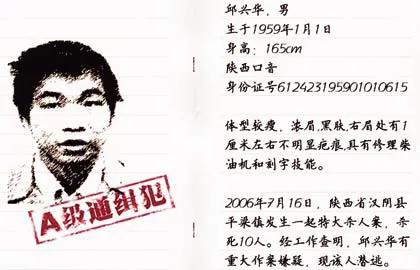 邱兴华，男
生于1959年1月1日
身高：165cm
陕西口音
身份证号612423195901010615
体型较瘦，浓眉,黑肤,右眉处有1
厘米左右不明显疤痕,具有修理柴
油机和刻字技能。
2006年7月16日，陕西省汉阴县
平梁镇发生一起特大杀人案，杀
死10人。经工作查明，邱兴华有
重大作案嫌疑，现该人潜逃。
A级通缉犯